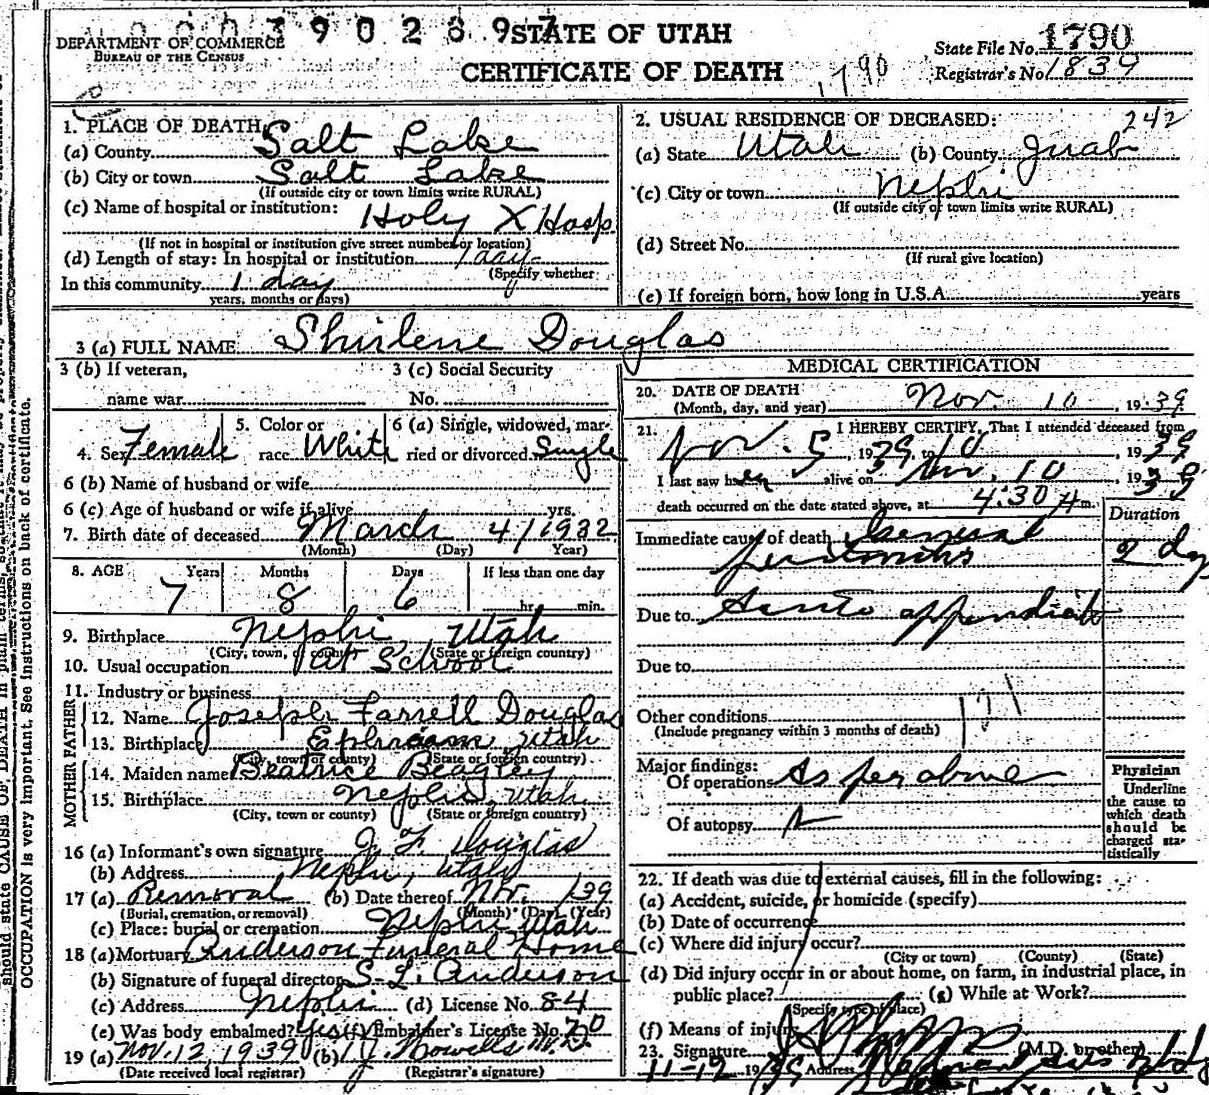 0003902897
STATE OF UTAH
DEPARTMENT OF COMMERCE
BUREAU OF THE CENSUS
CERTIFICATE OF DEATH
1790
State File No. 1790
Registrar's No. 1839
1. PLACE OF DEATH
(a) County Salt Lake
(b) City or town Salt Lake
(If outside city or town limits write RURAL)
(c) Name of hospital or institution: Holy X Hosp
(If not in hospital or institution give street number or location)
(d) Length of stay: In hospital or institution 1 day
(Specify whether
In this community 1 day
years, months or days)
2. USUAL RESIDENCE OF DECEASED: 242
(a) State Utah (b) County Juab
(c) City or town Nephi
(If outside city of town limits write RURAL)
(d) Street No.
(If rural give location)
(e) If foreign born, how long in U.S.A. years
3 (a) FULL NAME Shirlene Douglas
3 (b) If veteran,
name war
3 (c) Social Security
No.
4. Sex Female
5. Color or race White
6 (a) Single, widowed, married or divorced Single
6 (b) Name of husband or wife
6 (c) Age of husband or wife if alive yrs.
7. Birth date of deceased March 4/1932
(Month) (Day) Year)
8. AGE Years Months Days If less than one day
7 8 6 hr. min.
9. Birthplace Nephi, Utah
(City, town, or county) (State or foreign country)
10. Usual occupation at School
11. Industry or business
FATHER
12. Name Joseph Farrell Douglas
13. Birthplace Ephraim, Utah
(City, town or county) (State or foreign country)
MOTHER
14. Maiden name Beatrice Beagley
15. Birthplace Nephi, Utah
(City, town or county) (State or foreign country)
16 (a) Informant's own signature J. F. Douglas
(b) Address Nephi, Utah
17 (a) Removal (b) Date thereof Nov. 139
(Burial, cremation, or removal) (Month) (Day) (Year)
(c) Place: burial or cremation Nephi Utah
18 (a) Mortuary Anderson Funeral Home
(b) Signature of funeral director S. L. Anderson
(c) Address Nephi (d) License No. 84
(e) Was body embalmed? Yes (f) Embalmer's License No. 70
19 (a) Nov. 12, 1939 (b)
(Date received local registrar) (Registrar's signature)
MEDICAL CERTIFICATION
20. DATE OF DEATH
(Month, day, and year) Nov. 10, 1939
21. I HEREBY CERTIFY, That I attended deceased from
Nov. 5, 1939, to 10, 1939
I last saw her alive on Nov. 10, 1939
death occurred on the date stated above, at 4:30 A m.
Duration
Immediate cause of death General
peritonitis 2 dys
Due to Acute appendicitis
Due to
Other conditions
(Include pregnancy within 3 months of death)
121
Major findings:
Of operations As per above
Of autopsy
Physician
Underline
the cause to
which death
should be
charged sta-
tistically
22. If death was due to external causes, fill in the following:
(a) Accident, suicide, or homicide (specify)
(b) Date of occurrence
(c) Where did injury occur?
(City or town) (County) (State)
(d) Did injury occur in or about home, on farm, in industrial place, in
public place? (g) While at Work?
(Specify type of place)
(f) Means of injury
23. Signature (M.D. or other)
11-12 1939 Address
should state CAUSE OF DEATH in plain terms, so
OCCUPATION is very important. See instructions on back of certificate.